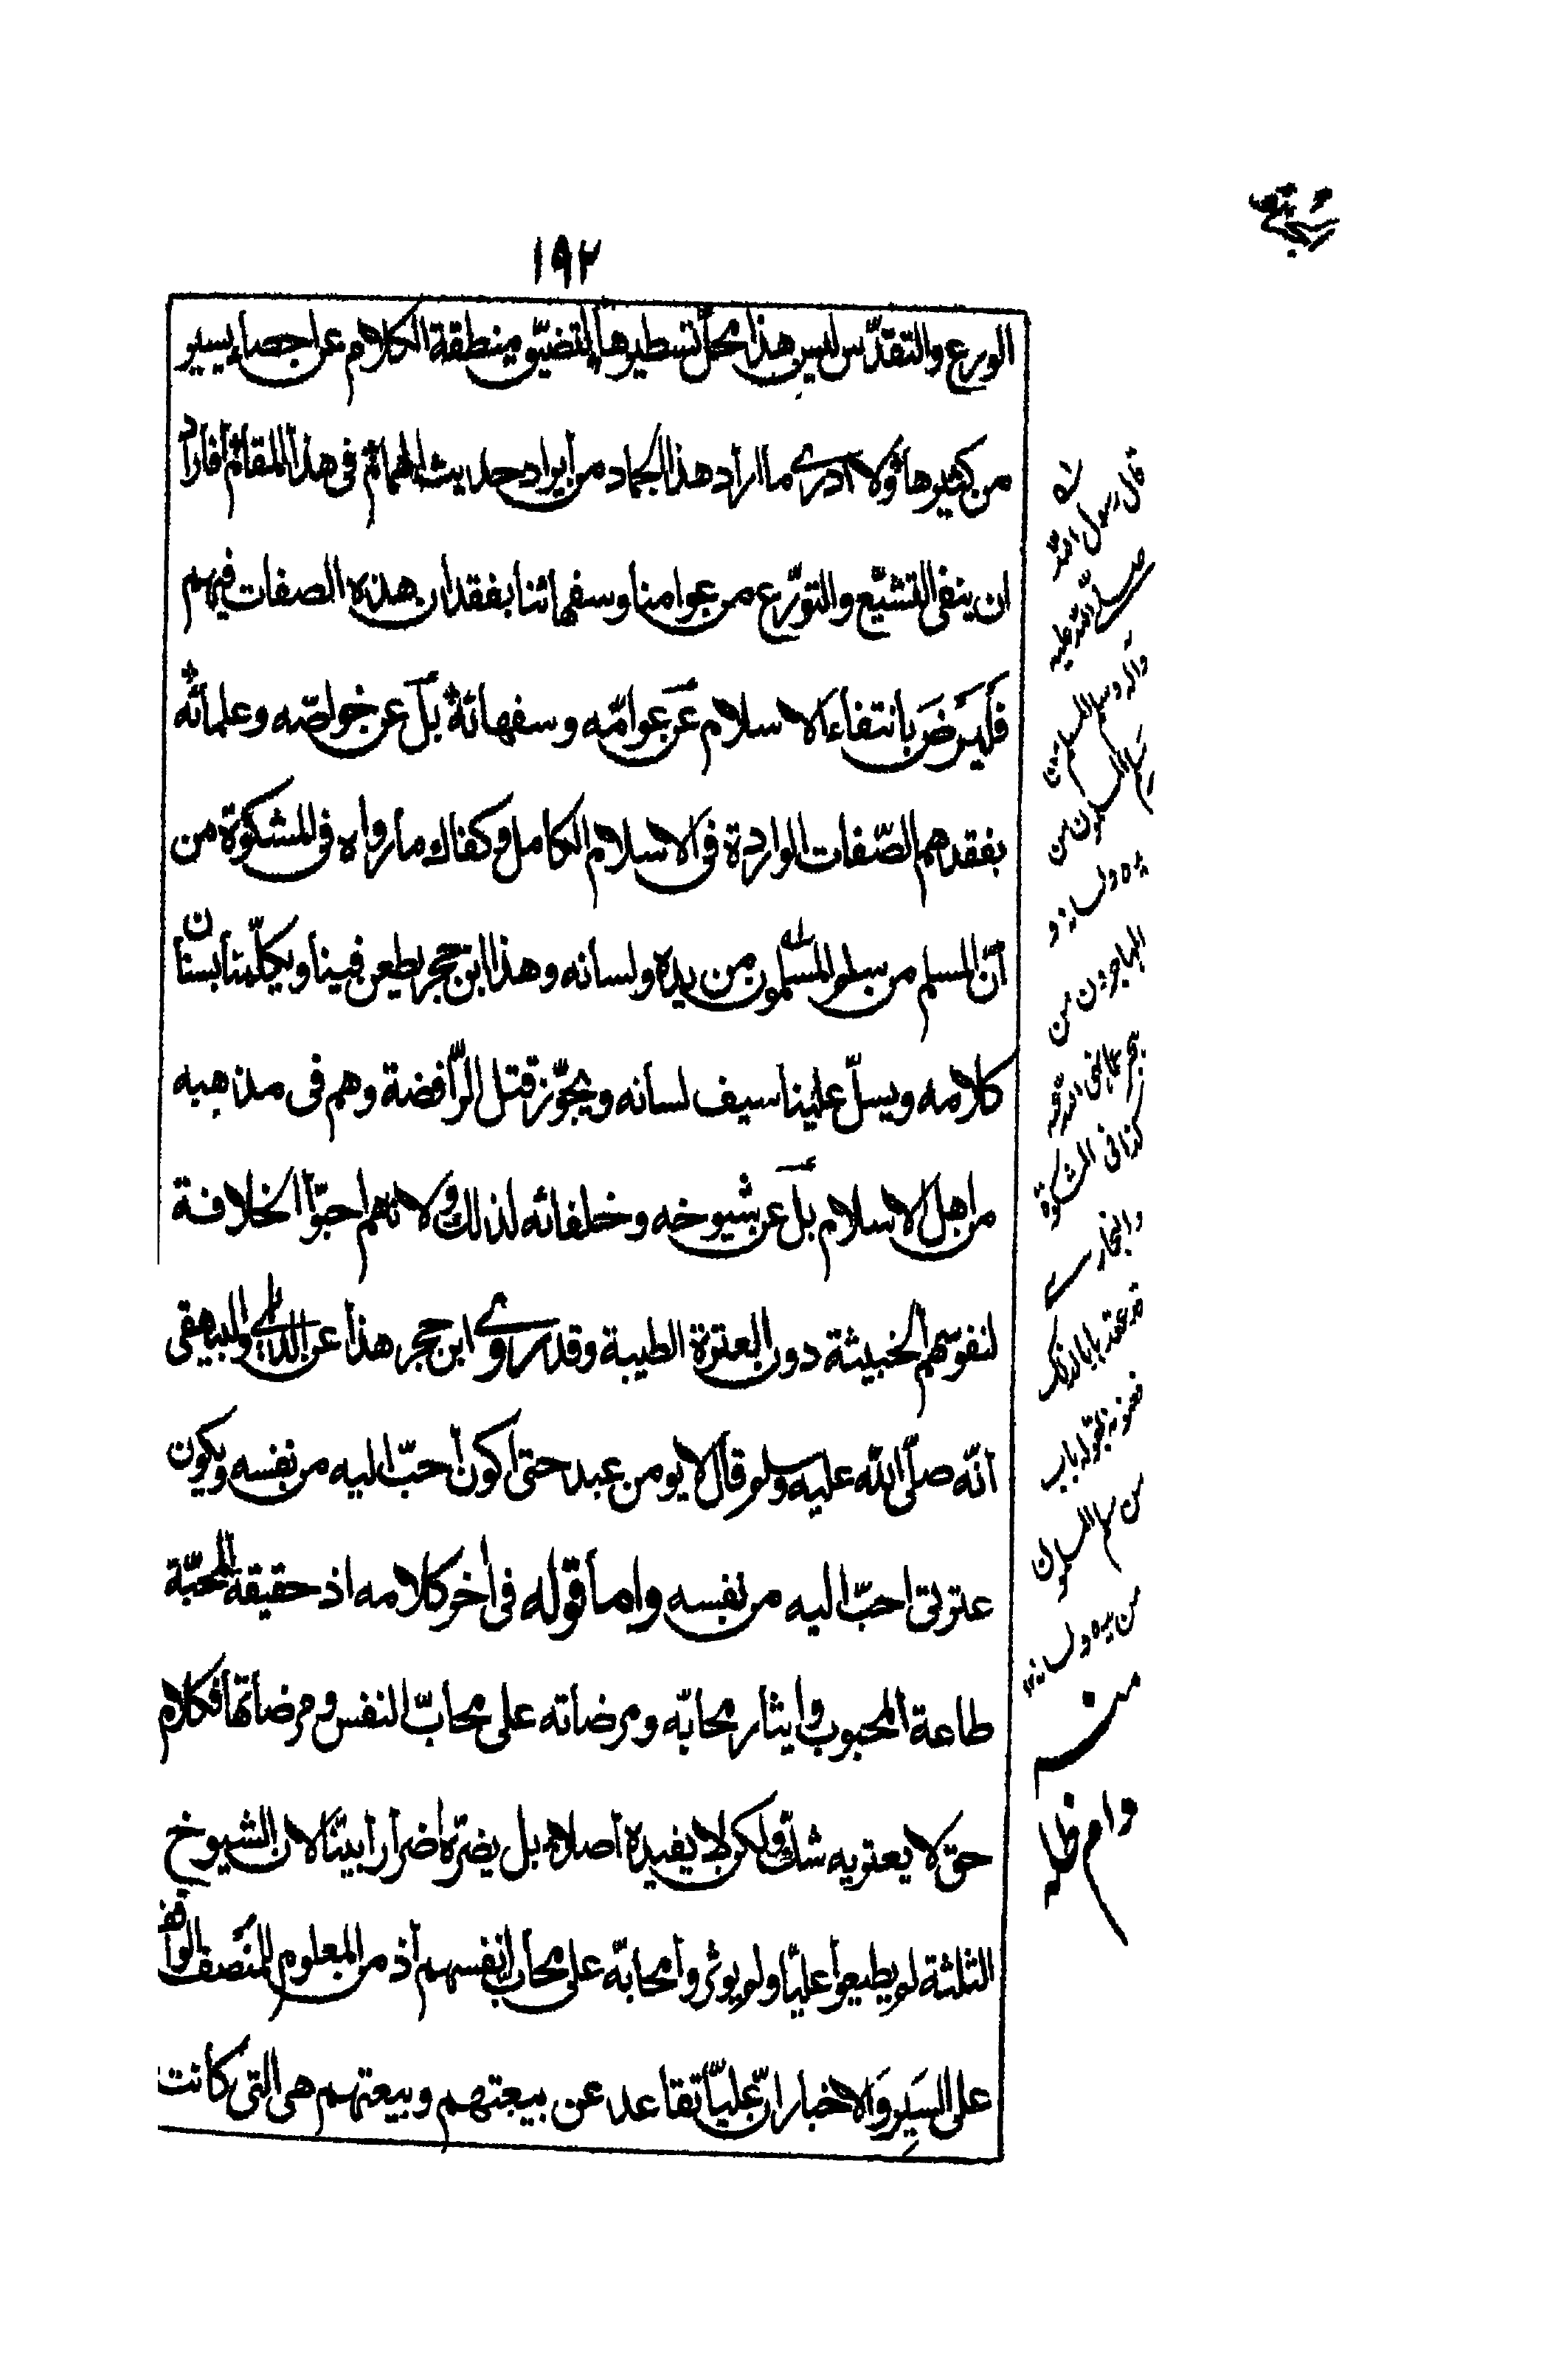 ١٩٢
الورع والتقدّس ليس هذا محلّ تسطيرها لتضيّق منطقة الكلام عن احصاء يسير
من كثيرها ولا ادرى ما اراد هذا الجماد من ايراد حديث الهمام فى هذا المقام أفاراد
ان ينفى التشيّع والتورّع من عوامنا وسفهائنا بفقدان هذه الصفات فيهم
فليرض بانتفاء الاسلام عن عوامّه وسفهائه بل عن خواصّه وعلمائه
بفقدهم الصّفات الواردة فى الاسلام الكامل وكفاك ما رواه فى المشكوة من
انّ المسلم من سلم المسلمون من يده ولسانه وهذا ابن حجر يطعن فينا ويكلّمنا بسنان
كلامه ويسلّ علينا سيف لسانه ويجوّز قتل الرّافضة وهم فى مذهبه
من اهل الاسلام بل عن شيوخه وخلفائه لذلك ولانهم احبّوا الخلافة
لنفوسهم الخبيثة دون العترة الطيبة وقد روى ابن حجر هذا عن الديلمى والبيهقى
انّه صلّى الله عليه وسلم قال لا يومن عبد حتى اكون احبّ اليه من نفسه ويكون
عترتى احبّ اليه من نفسه واما قوله فى أخر كلامه اذ حقيقة المحبّة
طاعة المحبوب وايثار محابّه ومرضاته على محابّ النفس ومرضاتها فكلام
حق لا يعتريه شك ولكن لا يفيده اصلا بل يضرّه اضرارا بيّنا لان الشيوخ
الثلثة لم يطيعوا عليّا ولم يوثروا محابّه على محاب انفسهم اذ من المعلوم للمنصف الواقف
على السير والاخبار انّ عليّا تقاعد عن بيعتهم وبيعتهم هى التى كانت
قال رسول الله
صلى الله عليه
وآله وسلم المسلم من
سلم المسلمون من
يده ولسانه و
المهاجر من
هجر ما نهى الله عنه
كذا فى المشكوة
والبخارى
قد عقد بابا لذلك
من سلم المسلمون
من يده ولسانه
منه
دام ظله